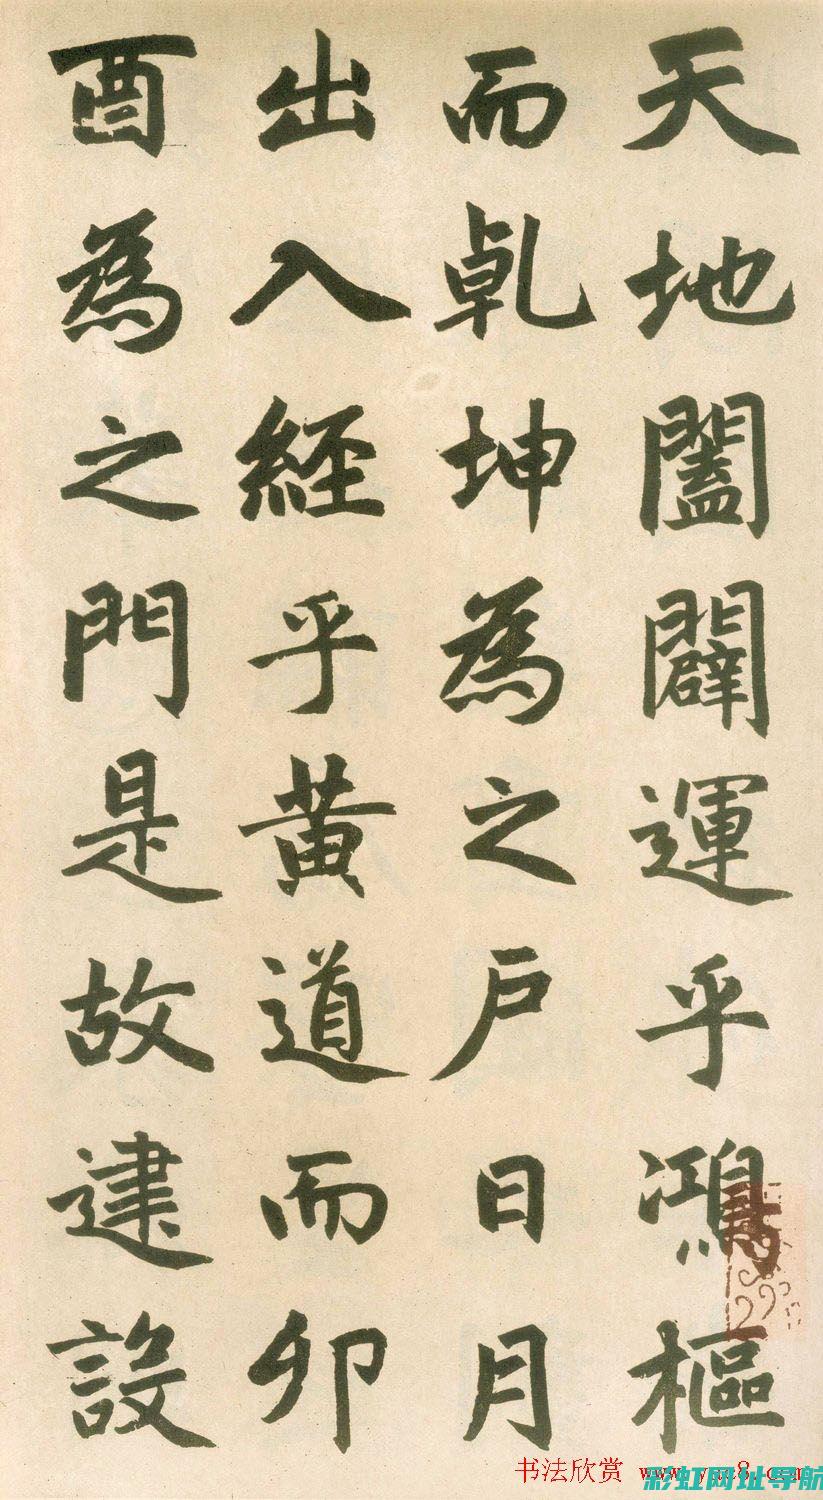 天地闔闢運乎鴻樞
而乹坤為之戶日月
出入經乎黃道而卯
酉為之門是故建設
书法欣赏
彩虹网址导航